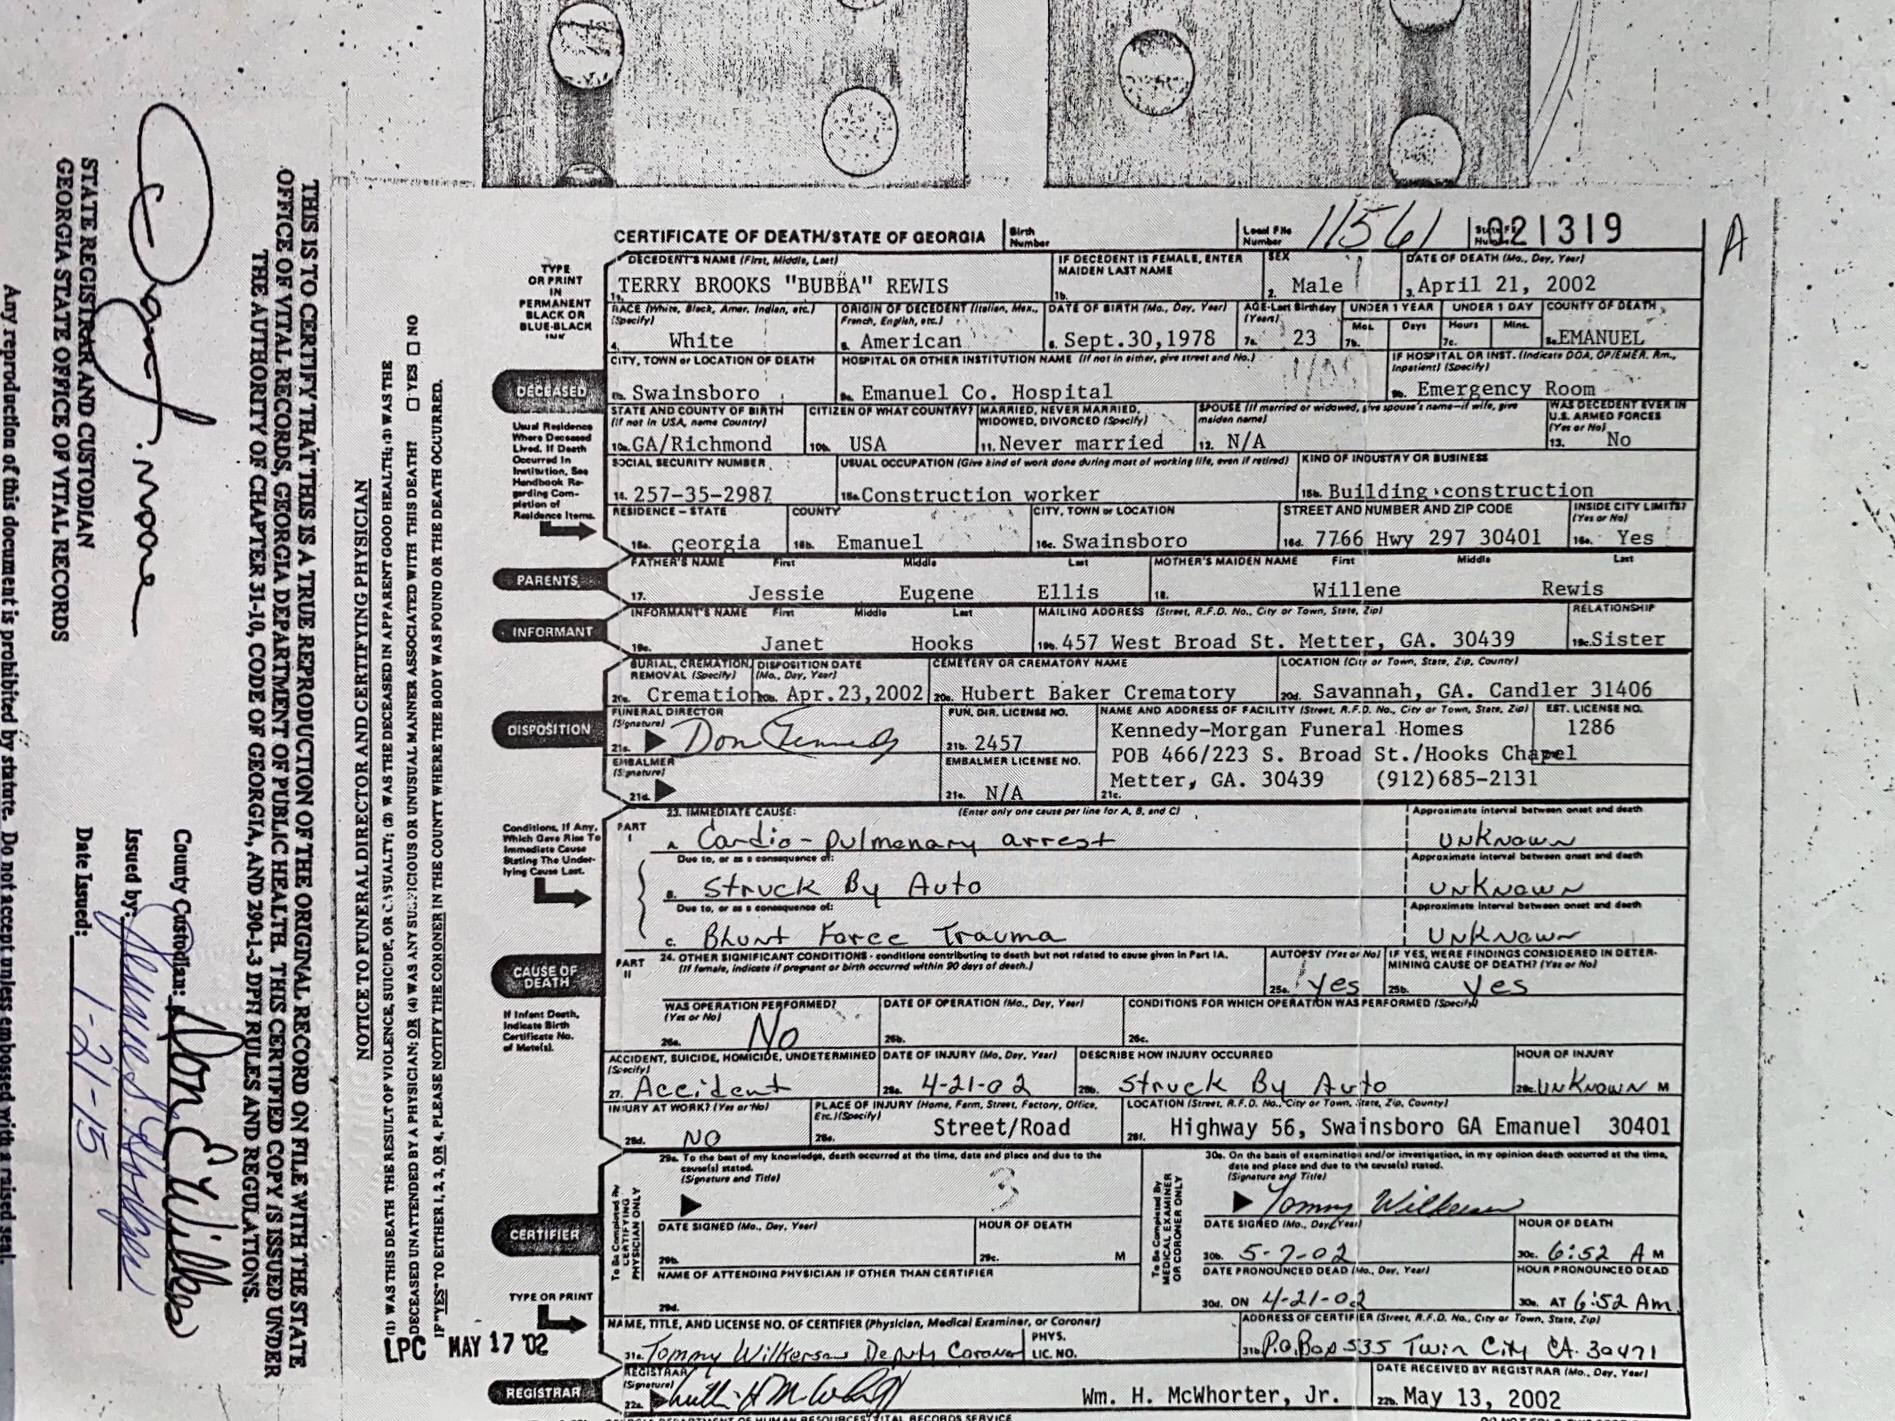 CERTIFICATE OF DEATH/STATE OF GEORGIA
Birth Number
Local File Number 11561
State File Number 021319
A
TYPE OR PRINT IN PERMANENT BLACK OR BLUE-BLACK INK
DECEDENT'S NAME (First, Middle, Last)
1a. TERRY BROOKS "BUBBA" REWIS
IF DECEDENT IS FEMALE, ENTER MAIDEN LAST NAME
1b.
SEX
2. Male
DATE OF DEATH (Mo., Day, Year)
3. April 21, 2002
RACE (White, Black, Amer. Indian, etc.) (Specify)
4. White
ORIGIN OF DECEDENT (Italian, Mex., French, English, etc.)
5. American
DATE OF BIRTH (Mo., Day, Year)
6. Sept.30,1978
AGE-Last Birthday (Years)
7a. 23
UNDER 1 YEAR
7b. Mos. Days
UNDER 1 DAY
7c. Hours Mins.
COUNTY OF DEATH
8a. EMANUEL
DECEASED
CITY, TOWN or LOCATION OF DEATH
Swainsboro
HOSPITAL OR OTHER INSTITUTION NAME (If not in either, give street and No.)
Emanuel Co. Hospital
IF HOSPITAL OR INST. (Indicate DOA, OP/EMER. Rm., Inpatient) (Specify)
Emergency Room
Usual Residence Where Deceased Lived. If Death Occurred In Institution, See Handbook Regarding Completion of Residence Items.
STATE AND COUNTY OF BIRTH (If not in USA, name Country)
10a. GA/Richmond
CITIZEN OF WHAT COUNTRY?
10b. USA
MARRIED, NEVER MARRIED, WIDOWED, DIVORCED (Specify)
11. Never married
SPOUSE (If married or widowed, give spouse's name—if wife, give maiden name)
12. N/A
WAS DECEDENT EVER IN U.S. ARMED FORCES (Yes or No)
13. No
SOCIAL SECURITY NUMBER
14. 257-35-2987
USUAL OCCUPATION (Give kind of work done during most of working life, even if retired)
15a. Construction worker
KIND OF INDUSTRY OR BUSINESS
15b. Building construction
RESIDENCE - STATE
16a. Georgia
COUNTY
16b. Emanuel
CITY, TOWN or LOCATION
16c. Swainsboro
STREET AND NUMBER AND ZIP CODE
16d. 7766 Hwy 297 30401
INSIDE CITY LIMITS? (Yes or No)
16e. Yes
PARENTS
FATHER'S NAME First Middle Last
17. Jessie Eugene Ellis
MOTHER'S MAIDEN NAME First Middle Last
18. Willene Rewis
INFORMANT
INFORMANT'S NAME First Middle Last
19a. Janet Hooks
MAILING ADDRESS (Street, R.F.D. No., City or Town, State, Zip)
19b. 457 West Broad St. Metter, GA. 30439
RELATIONSHIP
19c. Sister
DISPOSITION
BURIAL, CREMATION, REMOVAL (Specify)
20a. Cremation
DISPOSITION DATE (Mo., Day, Year)
20b. Apr.23,2002
CEMETERY OR CREMATORY NAME
20c. Hubert Baker Crematory
LOCATION (City or Town, State, Zip, County)
20d. Savannah, GA. Candler 31406
FUNERAL DIRECTOR (Signature)
21a. Don Kennedy
FUN. DIR. LICENSE NO.
21b. 2457
NAME AND ADDRESS OF FACILITY (Street, R.F.D. No., City or Town, State, Zip)
Kennedy-Morgan Funeral Homes
POB 466/223 S. Broad St./Hooks Chapel
Metter, GA. 30439 (912)685-2131
21c.
EST. LICENSE NO.
1286
EMBALMER (Signature)
21d.
EMBALMER LICENSE NO.
21e. N/A
Conditions, If Any, Which Gave Rise To Immediate Cause Stating The Underlying Cause Last.
CAUSE OF DEATH
PART I
23. IMMEDIATE CAUSE: (Enter only one cause per line for A, B, and C)
A. Cardio-pulmonary arrest
Approximate interval between onset and death
UNKNOWN
Due to, or as a consequence of:
B. Struck By Auto
Approximate interval between onset and death
UNKNOWN
Due to, or as a consequence of:
C. Blunt Force Trauma
Approximate interval between onset and death
UNKNOWN
PART II
24. OTHER SIGNIFICANT CONDITIONS - conditions contributing to death but not related to cause given in Part 1A. (If female, indicate if pregnant or birth occurred within 90 days of death.)
AUTOPSY (Yes or No)
25a. Yes
IF YES, WERE FINDINGS CONSIDERED IN DETERMINING CAUSE OF DEATH? (Yes or No)
25b. Yes
If Infant Death, Indicate Birth Certificate No. of Mate(s).
WAS OPERATION PERFORMED? (Yes or No)
26a. No
DATE OF OPERATION (Mo., Day, Year)
26b.
CONDITIONS FOR WHICH OPERATION WAS PERFORMED (Specify)
26c.
ACCIDENT, SUICIDE, HOMICIDE, UNDETERMINED (Specify)
27. Accident
DATE OF INJURY (Mo., Day, Year)
28a. 4-21-02
DESCRIBE HOW INJURY OCCURRED
28b. Struck By Auto
HOUR OF INJURY
28c. UNKNOWN M
INJURY AT WORK? (Yes or No)
28d. NO
PLACE OF INJURY (Home, Farm, Street, Factory, Office, Etc.) (Specify)
28e. Street/Road
LOCATION (Street, R.F.D. No., City or Town, State, Zip, County)
28f. Highway 56, Swainsboro GA Emanuel 30401
CERTIFIER
To Be Completed By CERTIFYING PHYSICIAN ONLY
29a. To the best of my knowledge, death occurred at the time, date and place and due to the cause(s) stated.
(Signature and Title)
3
DATE SIGNED (Mo., Day, Year)
29b.
HOUR OF DEATH
29c. M
NAME OF ATTENDING PHYSICIAN IF OTHER THAN CERTIFIER
29d.
To Be Completed By MEDICAL EXAMINER OR CORONER ONLY
30a. On the basis of examination and/or investigation, in my opinion death occurred at the time, date and place and due to the cause(s) stated.
(Signature and Title)
Tommy Wilkerson
DATE SIGNED (Mo., Day, Year)
30b. 5-7-02
HOUR OF DEATH
30c. 6:52 A M
DATE PRONOUNCED DEAD (Mo., Day, Year)
30d. ON 4-21-02
HOUR PRONOUNCED DEAD
30e. AT 6:52 Am
TYPE OR PRINT
NAME, TITLE, AND LICENSE NO. OF CERTIFIER (Physician, Medical Examiner, or Coroner)
31a. Tommy Wilkerson Deputy Coroner
PHYS. LIC. NO.
ADDRESS OF CERTIFIER (Street, R.F.D. No., City or Town, State, Zip)
31b. P.O. Box 535 Twin City GA. 30471
LPC MAY 17 '02
REGISTRAR
REGISTRAR (Signature)
22a.
Wm. H. McWhorter, Jr.
DATE RECEIVED BY REGISTRAR (Mo., Day, Year)
22b. May 13, 2002
NOTICE TO FUNERAL DIRECTOR AND CERTIFYING PHYSICIAN
(1) WAS THIS DEATH THE RESULT OF VIOLENCE, SUICIDE, OR CASUALTY; (2) WAS THE DECEASED IN APPARENT GOOD HEALTH; (3) WAS THE
DECEASED UNATTENDED BY A PHYSICIAN; OR (4) WAS ANY SUSPICIOUS OR UNUSUAL MANNER ASSOCIATED WITH THIS DEATH? ☐ YES ☐ NO
IF "YES" TO EITHER 1, 2, 3, OR 4, PLEASE NOTIFY THE CORONER IN THE COUNTY WHERE THE BODY WAS FOUND OR THE DEATH OCCURRED.
THIS IS TO CERTIFY THAT THIS IS A TRUE REPRODUCTION OF THE ORIGINAL RECORD ON FILE WITH THE STATE
OFFICE OF VITAL RECORDS, GEORGIA DEPARTMENT OF PUBLIC HEALTH. THIS CERTIFIED COPY IS ISSUED UNDER
THE AUTHORITY OF CHAPTER 31-10, CODE OF GEORGIA, AND 290-1-3 DPH RULES AND REGULATIONS.
STATE REGISTRAR AND CUSTODIAN
GEORGIA STATE OFFICE OF VITAL RECORDS
County Custodian: Don E. Wilkes
Issued by:
Date Issued: 1-21-15
Any reproduction of this document is prohibited by statute. Do not accept unless embossed with a raised seal.